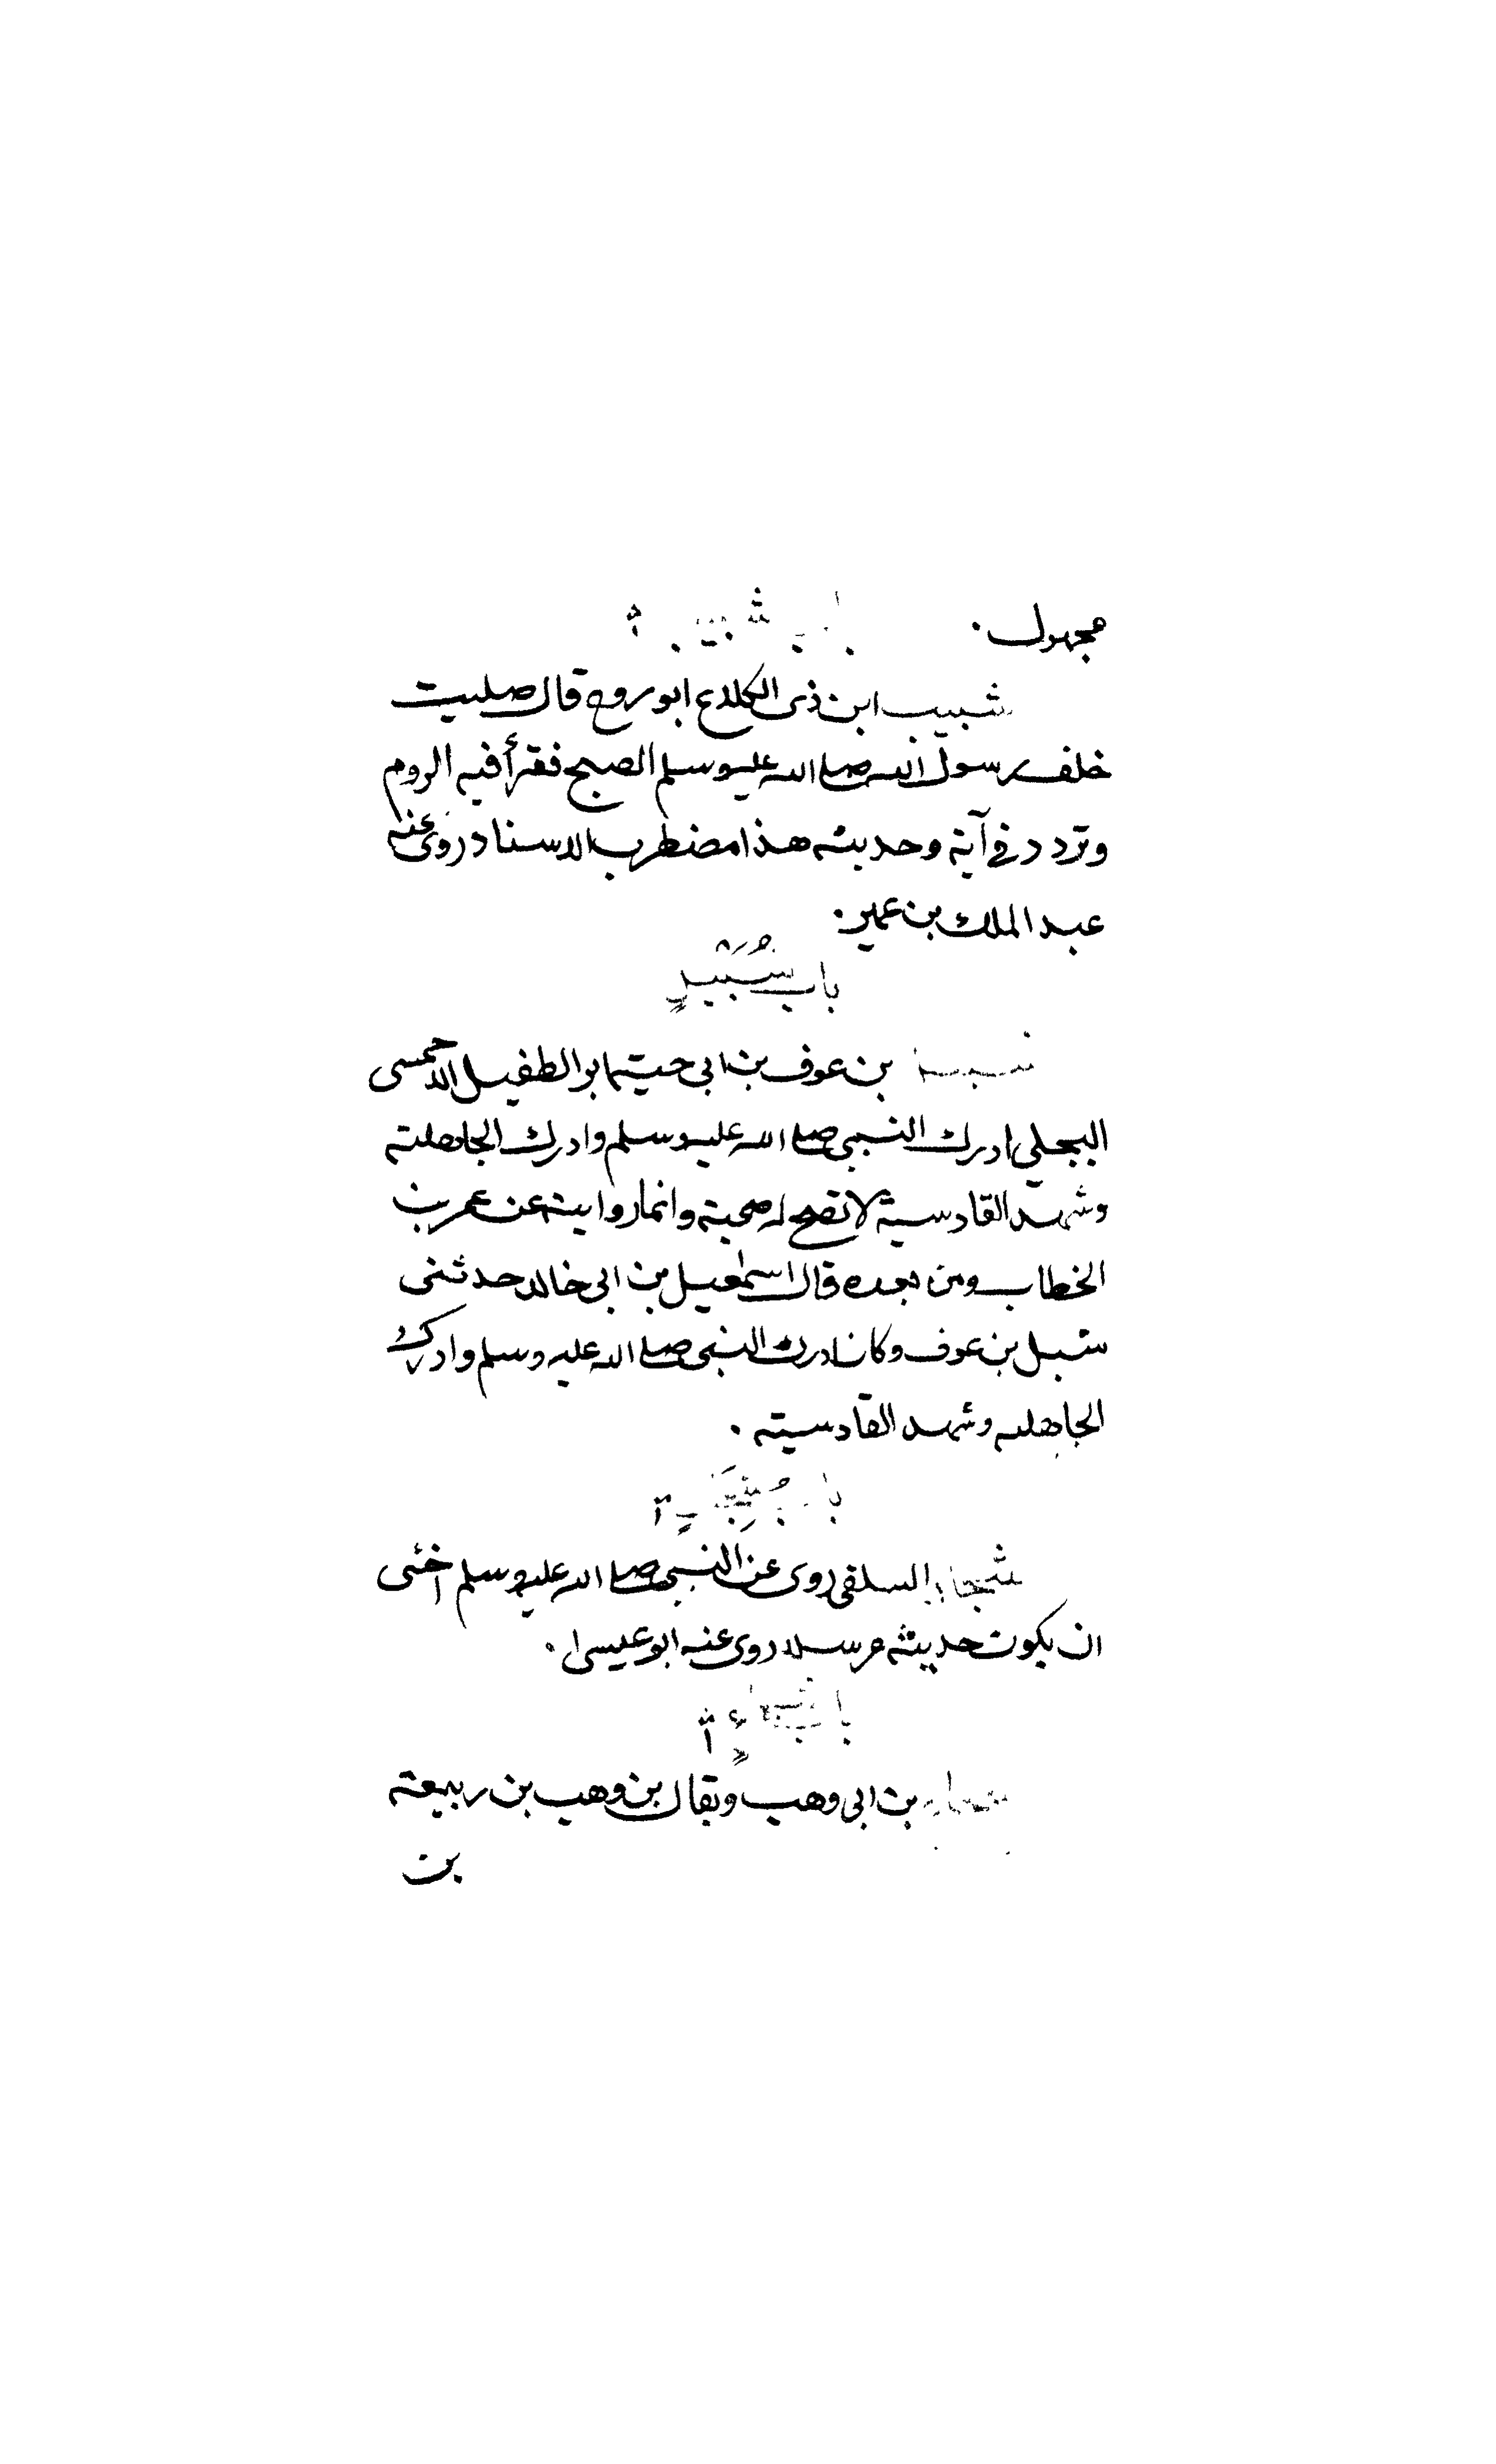 مجهول.
شبيب ابن ذى الكلاع ابو روح قال صليت
خلف رسول الله صلى الله عليه وسلم الصبح فقرأ فيه الروم
وتردد في آية وحديثه هذا مضطرب الاسناد روى عنه
عبد الملك بن عمير.
باب شُبَيلٍ
بن عوف بن ابى حية ابو الطفيل الاحمسى
البجلي ادرك النبي صلى الله عليه وسلم وادرك الجاهلية
وشهد القادسية لا تصح له صحبة وانما روايته عن عمر بن
الخطاب ومن بعده قال اسمعيل بن ابى خالد حدثنى
شبل بن عوف وكان ادرك النبي صلى الله عليه وسلم وادرك
الجاهلية وشهد القادسية.
باب
شجار السلفى روى عن النبي صلى الله عليه وسلم اخشى
ان يكون حديثه مرسلا روى عنه ابو عيسى.
باب
بن ابى وهب ويقال بن وهب بن ربيعة
بن